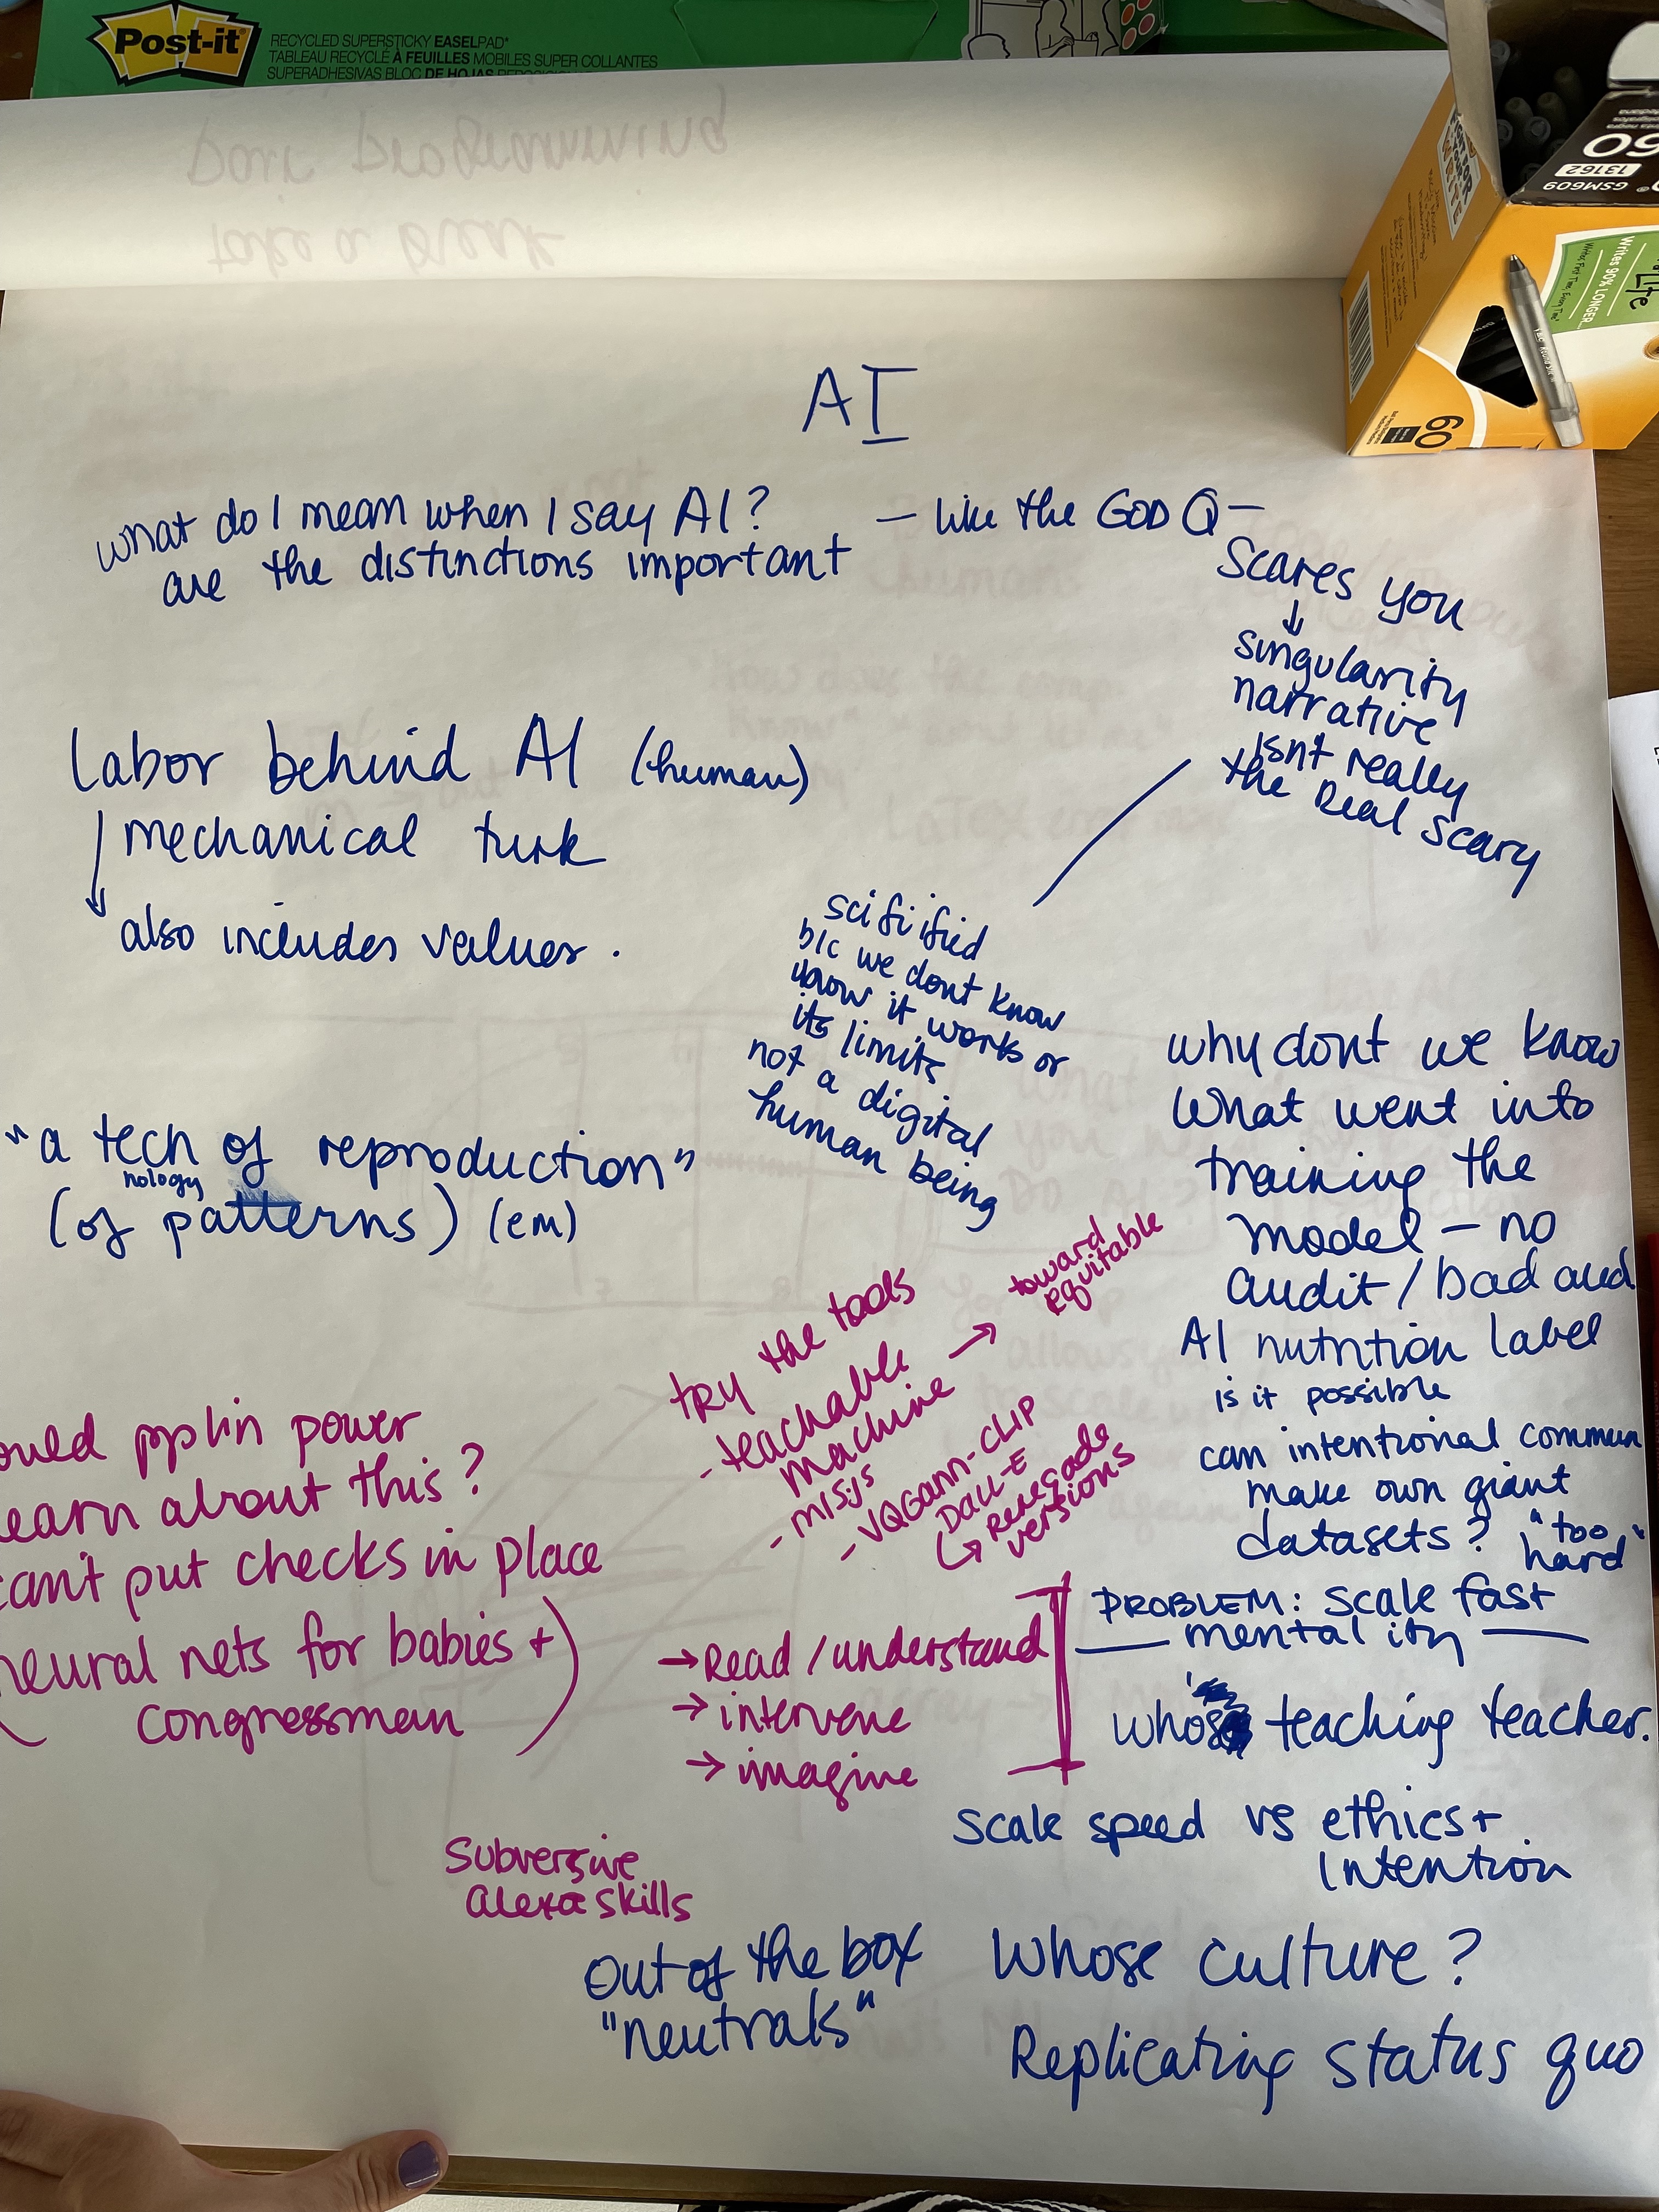 Post-it
RECYCLED SUPERSTICKY EASELPAD
TABLEAU RECYCLÉ À FEUILLES MOBILES SUPER COLLANTES
SUPERADHESIVAS BLOC DE HOJAS
60
13162
GSM609
Writes 90% LONGER
60
AI
what do I mean when I say AI?
are the distinctions important
— like the GOD Q —
Scares you
↓
singularity
narrative
isnt really
the real scary
Labor behind AI (human)
mechanical turk
also includes values.
scifiified
b/c we dont know
how it works or
its limits
not a digital
human being
"a tech of reproduction"
nology
(of patterns) (em)
why dont we know
what went into
training the
model — no
audit / bad aud
AI nutrition label
is it possible
can intentional commun
make own giant
datasets? "too
hard"
try the tools
- teachable
machine → toward
equitable
- mlsys
- VQGann-CLIP
Dall-E
↳ Renegade
versions
ould ppl in power
earn about this?
cant put checks in place
neural nets for babies +
congressman)
→ Read / understand
→ intervene
→ imagine
PROBLEM: scale fast
— mentality —
whos teaching teacher.
Scale speed vs ethics +
Intention
Subversive
alexa skills
Out of the box
"neutrals"
Whose culture?
Replicating status quo